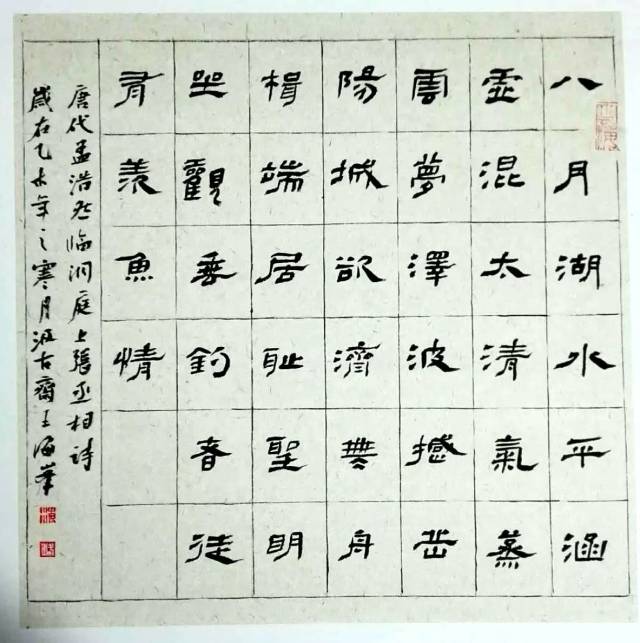 八月湖水平涵
虛混太清氣蒸
雲夢澤波撼岳
陽城欲濟無舟
楫端居耻聖明
坐觀垂釣者徒
有羨魚情
唐代孟浩然臨洞庭上張丞相詩
歲在乙未年之寒月汲古齋王海峯